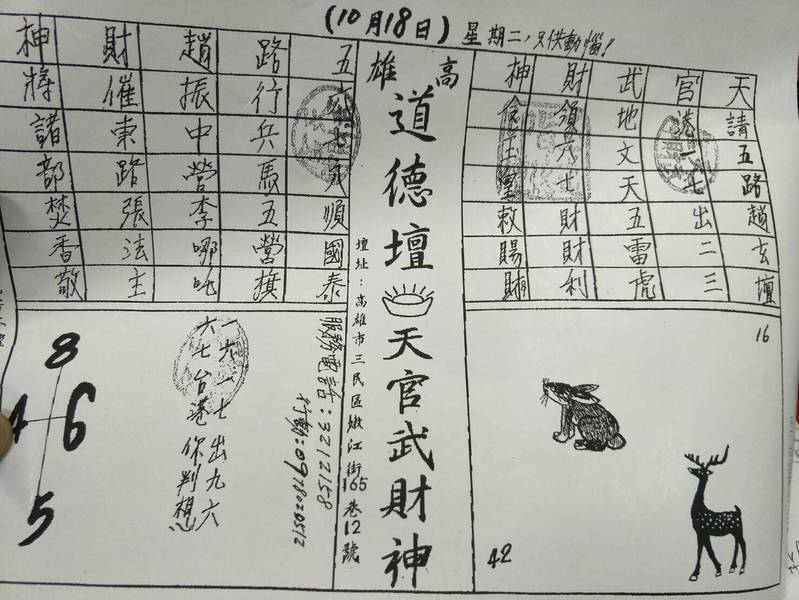 (10月18日) 星期二,只供動惱!
天請五路趙玄壇
官港一七出二三
武地文天五雷虎
財須六七財財利
神玉皇敕賜財
16
42
高雄
道德壇天官武財神
壇址:高雄市三民區嫩江街165巷12號
五六七天順國泰
路行兵馬五營旗
趙振中營李哪吒
財催東路張法主
神將諸部焚香敬
服務電話:3212158
行動:0978020512
一六一七出九六
六七台港你判想
8
4 6
5